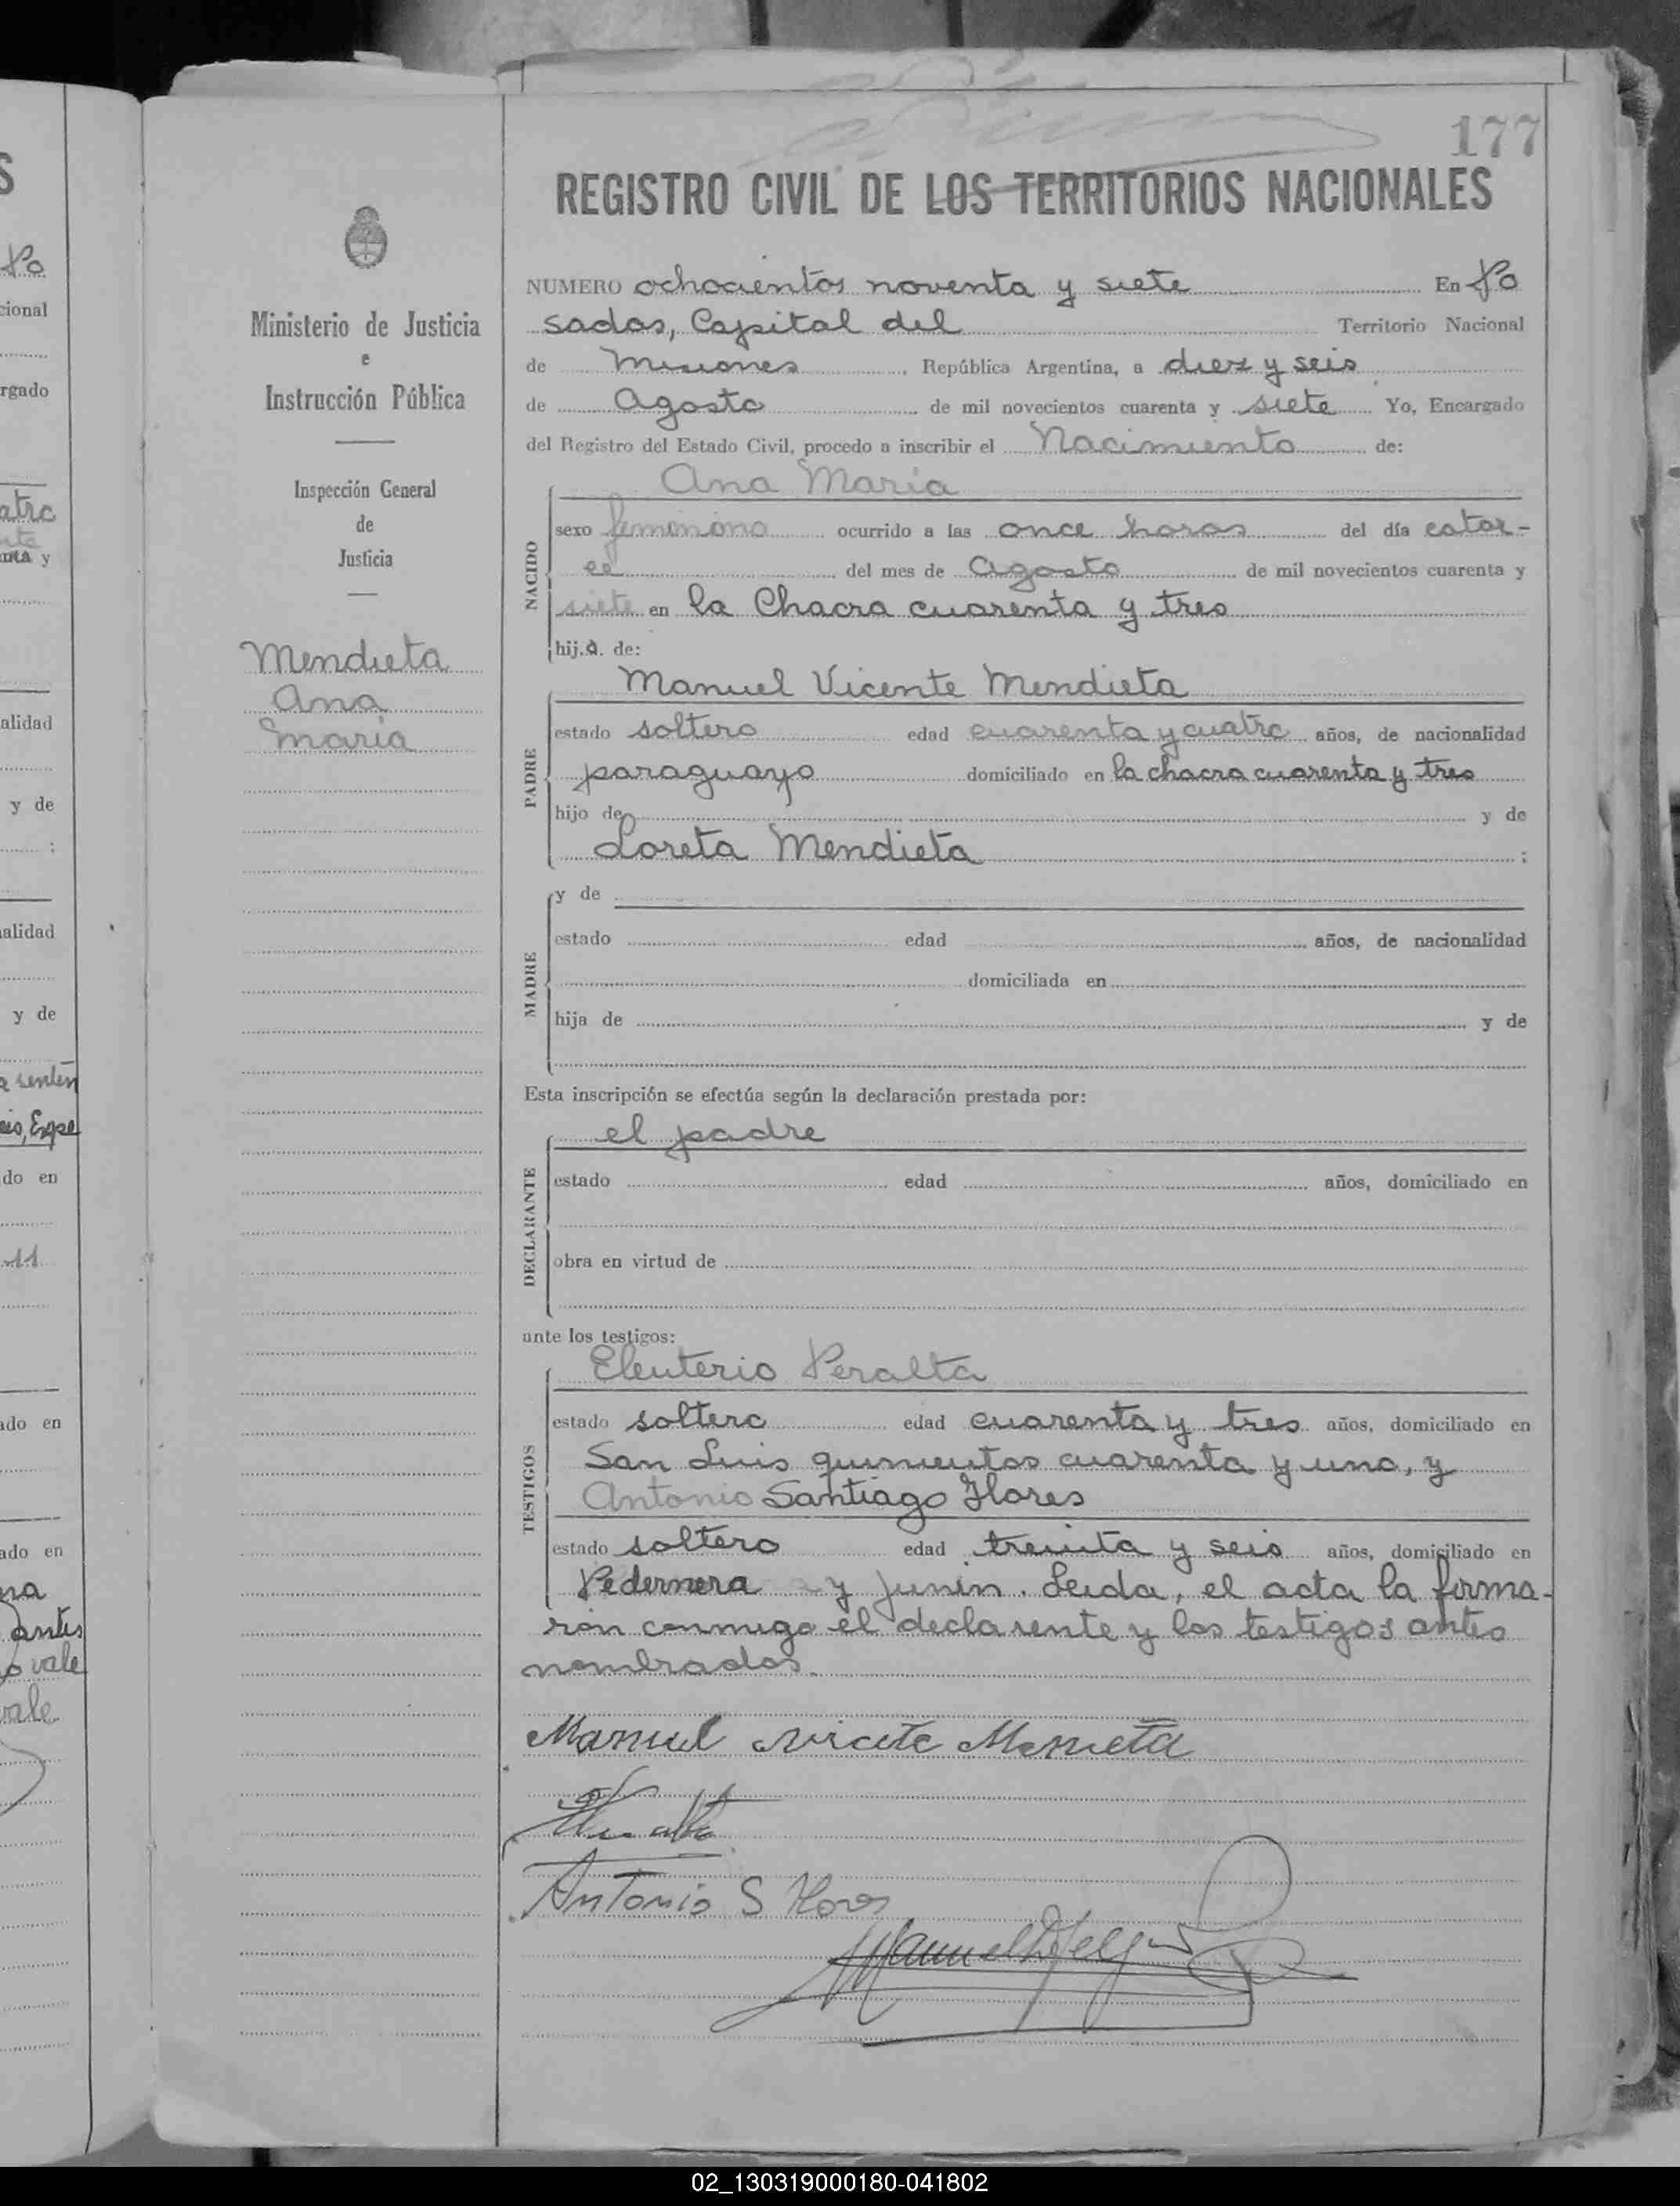 177
REGISTRO CIVIL DE LOS TERRITORIOS NACIONALES
Ministerio de Justicia
e
Instrucción Pública
Inspección General
de
Justicia
Mendieta
Ana
María
NUMERO ochocientos noventa y siete En Po
sadas, Capital del Territorio Nacional
de Misiones, República Argentina, a diez y seis
de Agosto de mil novecientos cuarenta y siete Yo, Encargado
del Registro del Estado Civil, procedo a inscribir el Nacimiento de:
NACIDO
Ana María
sexo feminino ocurrido a las once horas del día cator-
ce del mes de Agosto de mil novecientos cuarenta y
siete en la Chacra cuarenta y tres
hija de:
PADRE
Manuel Vicente Mendieta
estado soltero edad cuarenta y cuatro años, de nacionalidad
paraguayo domiciliado en la chacra cuarenta y tres
hijo de y de
Loreta Mendieta ;
MADRE
y de
estado edad años, de nacionalidad
domiciliada en
hija de y de
Esta inscripción se efectúa según la declaración prestada por:
DECLARANTE
el padre
estado edad años, domiciliado en
obra en virtud de
ante los testigos:
TESTIGOS
Eleuterio Peralta
estado soltero edad cuarenta y tres años, domiciliado en
San Luis quinientos cuarenta y uno, y
Antonio Santiago Flores
estado soltero edad treinta y seis años, domiciliado en
Pedernera y Junin. Leida, el acta la firma-
ron conmigo el declarente y los testigos antes
nombrados.
Manuel
Antonio S Flores
Manuel
02_130319000180-041802